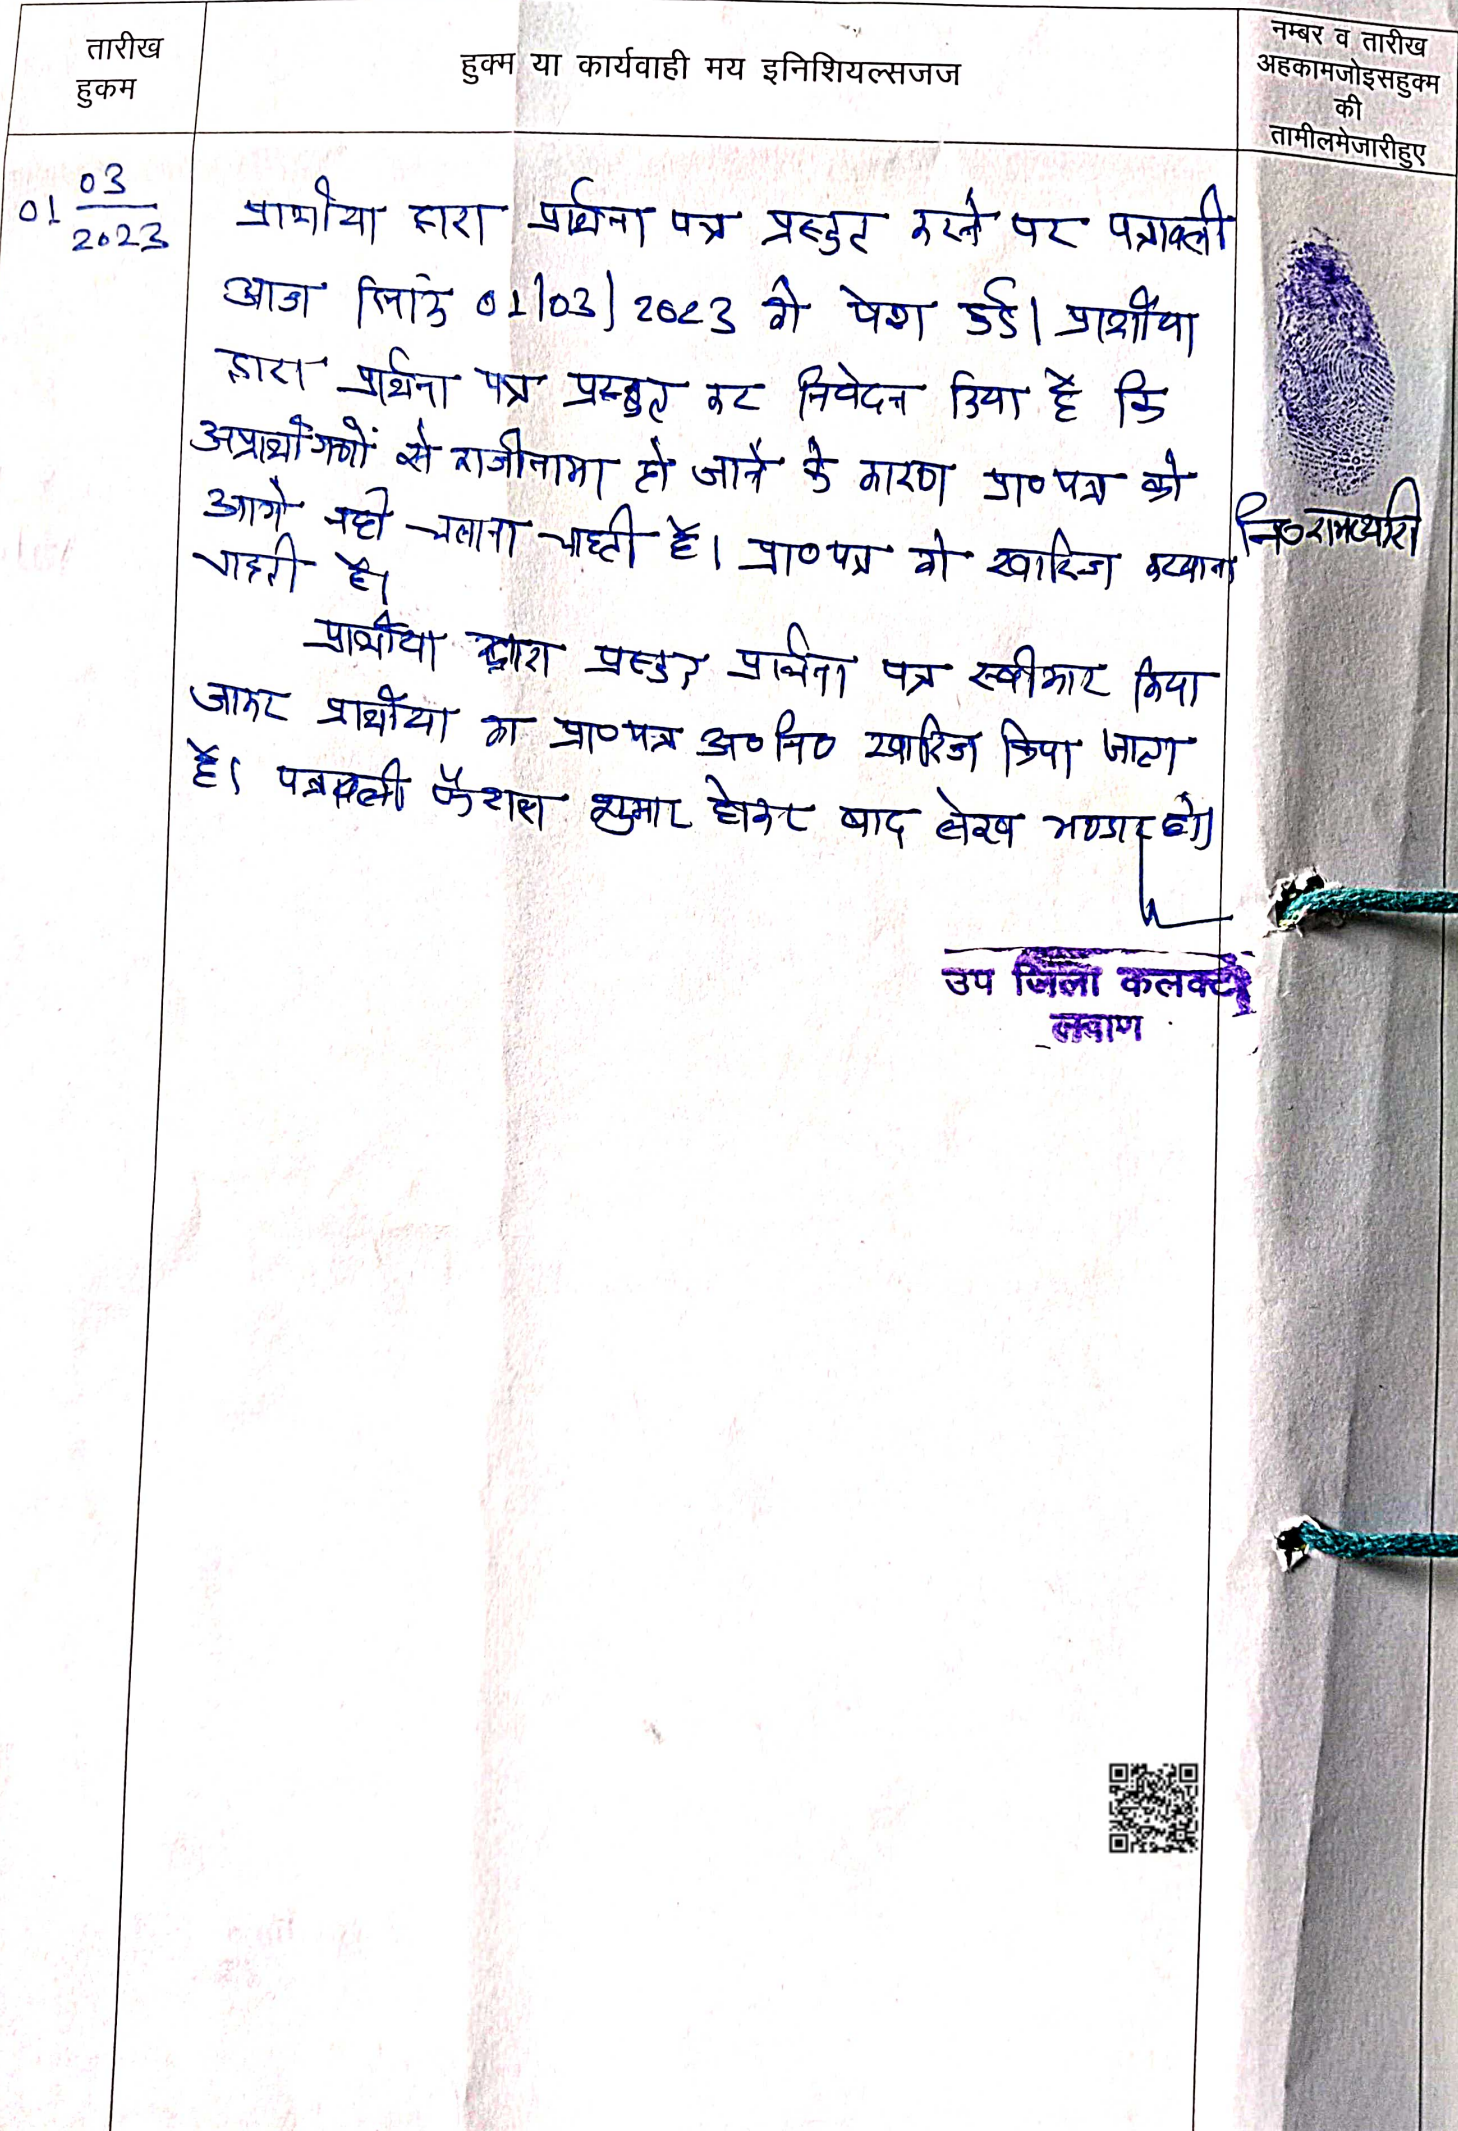 तारीख
हुकम
हुक्म या कार्यवाही मय इनिशियल्सजज
नम्बर व तारीख
अहकामजोइसहुक्म
की
तामीलमेजारीहुए
01 03
2023
प्रार्थीया द्वारा प्रार्थना पत्र प्रस्तुत करने पर पत्रावली
आज दिनांक 01/03/2023 को पेश हुई। प्रार्थीया
द्वारा प्रार्थना पत्र प्रस्तुत कर निवेदन किया है कि
अप्रार्थीगणों से राजीनामा हो जाने के कारण प्रा० पत्र को
आगे नही चलाना चाहती है। प्रा० पत्र को खारिज करवाना
चाहती है।
नि० रामप्यारी
प्रार्थीया द्वारा प्रस्तुत प्रार्थना पत्र स्वीकार किया
जाकर प्रार्थीया का प्रा० पत्र अ० नि० खारिज किया जाता
है। पत्रावली फैशल शुमार होकर बाद लेख भण्डार हो।
उप जिला कलक्टर
लवाण